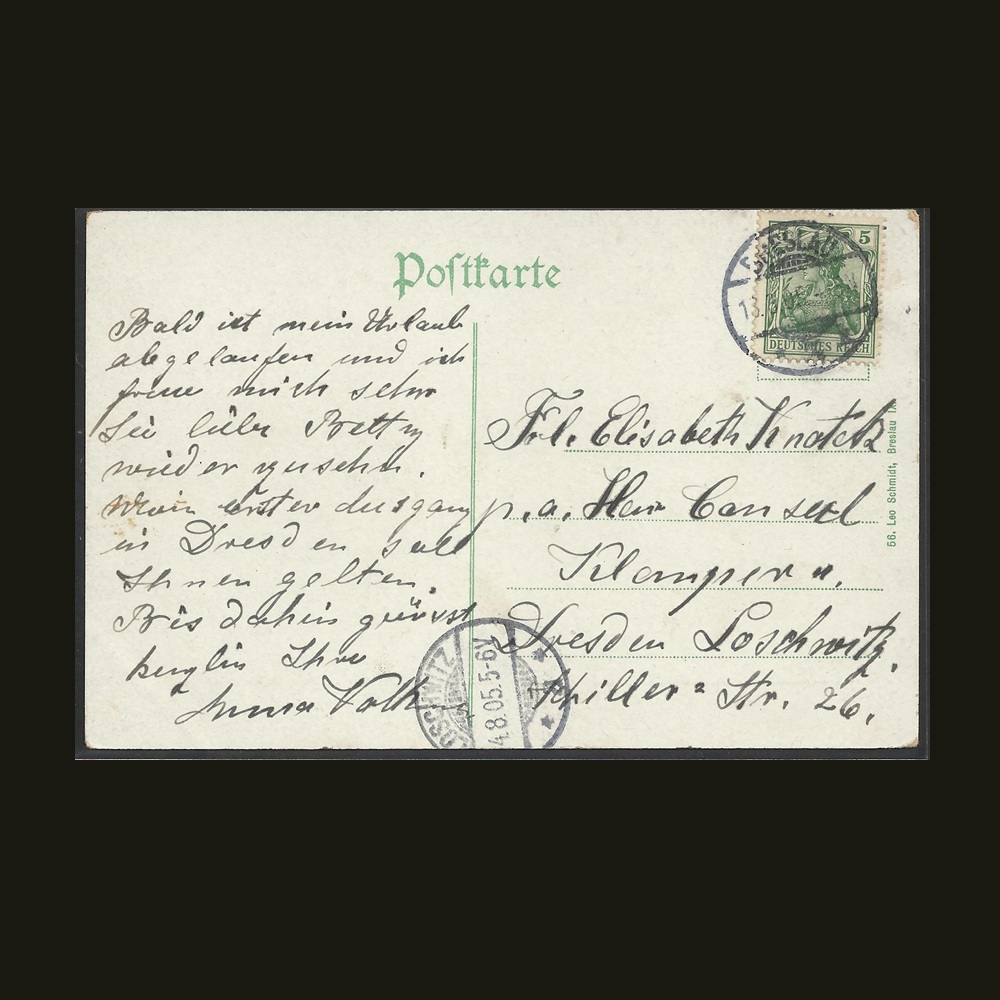 Postkarte
BRESLAU
13.
5
DEUTSCHES REICH
Bald ist mein Urlaub
abgelaufen und ich
freue mich sehr
Sie liebe Betty
wieder zu sehn.
Mein erster Ausgang
in Dresden soll
Ihnen gelten.
Bis dahin grüsst
herzlich Ihre
Anna
Frl. Elisabeth
p. a. Herr Consul
Klemperer.
Dresden Loschwitz.
Schiller-Str. 26.
LOSCHWITZ
4.8.05.5-6V
56. Leo Schmidt, Breslau IX.